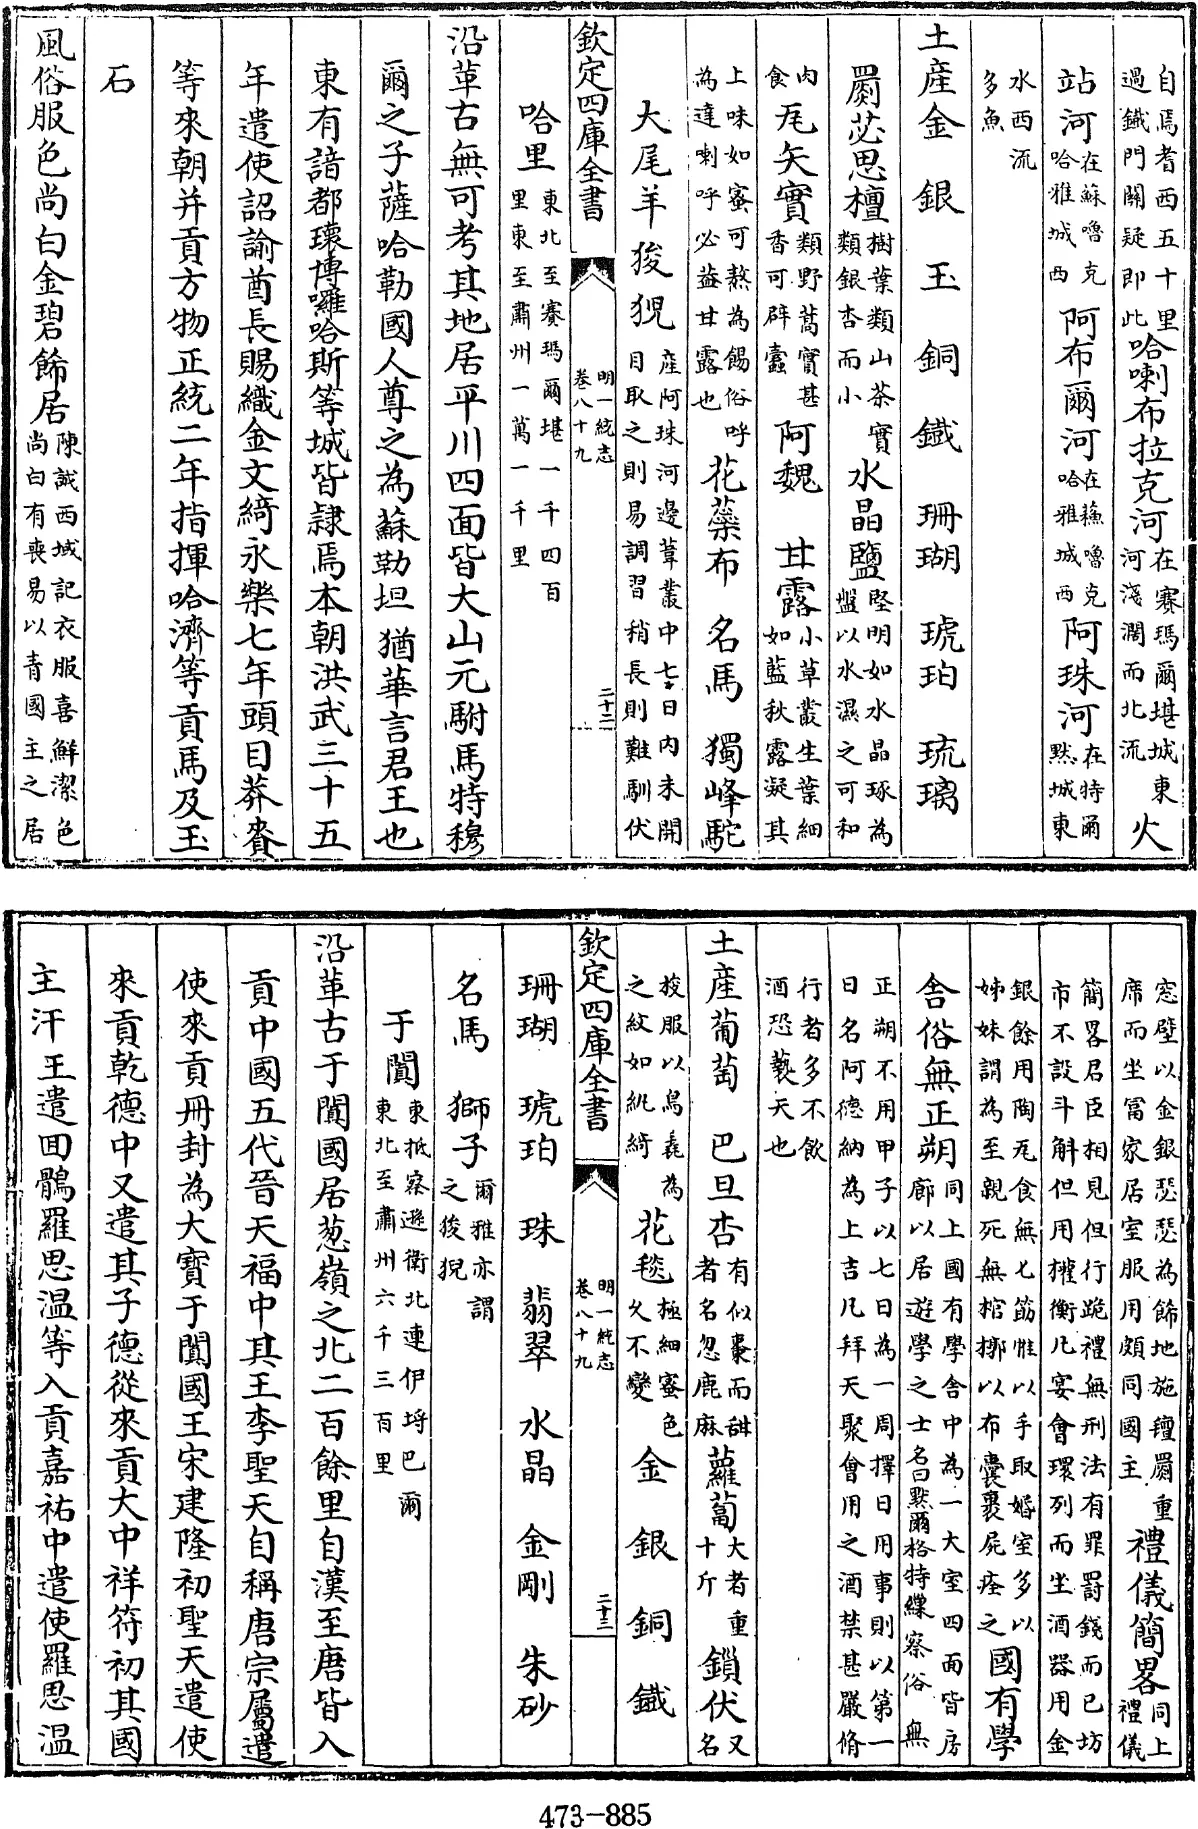 自焉耆西五十里過鐵門關疑即此哈喇布拉克河在賽瑪爾堪城東河淺濶而北流火
站河在蘇嚕克哈雅城西阿布爾河在蘇嚕克哈雅城西阿珠河在特爾黙城東
水西流多魚
土産金 銀 玉 銅 鐵 珊瑚 琥珀 琉璃
罽苾思檀樹葉類山茶實類銀杏而小水晶鹽堅明如水晶琢為盤以水濕之可和
肉食瓦矢實類野蒿實甚香可辟蠹阿魏 甘露小草叢生葉細如藍秋露凝其
上味如蜜可熬為餳俗呼為達喇呼必益甘露也花蘂布 名馬 獨峰駝
大尾羊狻猊産阿珠河邊葦叢中七日内未開目取之則易調習稍長則難馴伏
欽定四庫全書 明一統志 卷八十九 二十二
哈里東北至賽瑪爾堪一千四百里東至肅州一萬一千里
沿革古無可考其地居平川四面皆大山元駙馬特穆
爾之子薩哈勒國人尊之為蘇勒坦猶華言君王也
東有諳都壞博囉哈斯等城皆隸焉本朝洪武三十五
年遣使詔諭酋長賜織金文綺永樂七年頭目莽賚
等來朝并貢方物正統二年指揮哈濟等貢馬及玉
石
風俗服色尚白金碧飾居陳誠西域記衣服喜鮮潔色尚白有喪易以青國主之居
窓壁以金銀瑟瑟為飾地施氊罽重席而坐富家居室服用頗同國主禮儀簡畧同上禮儀
簡畧君臣相見但行跪禮無刑法有罪罰錢而已坊市不設斗斛但用權衡凡宴會環列而坐酒器用金
銀餘用陶瓦食無匕筯惟以手取婚室多以姊妹謂為至親死無棺槨以布囊裹屍瘞之國有學
舍俗無正朔同上國有學舍中為一大室四面皆房廊以居遊學之士名曰黙爾格特繅察俗無
正朔不用甲子以七日為一周擇日用事則以第一日名阿德納為上吉凡拜天聚會用之酒禁甚嚴脩
行者多不飲酒恐褻天也
土産葡萄 巴旦杏有似棗而甜者名忽鹿麻蘿蔔大者重十斤鎖伏又名
梭服以鳥毳為之紋如紈綺花毯極細蜜色久不變金 銀 銅 鐵
欽定四庫全書 明一統志 卷八十九 二十三
珊瑚 琥珀 珠 翡翠 水晶 金剛 朱砂
名馬 獅子爾雅亦謂之狻猊
于闐東抵察遜衛北連伊埒巴爾東北至肅州六千三百里
沿革古于闐國居葱嶺之北二百餘里自漢至唐皆入
貢中國五代晉天福中其王李聖天自稱唐宗屬遣
使來貢冊封為大寳于闐國王宋建隆初聖天遣使
來貢乾德中又遣其子德從來貢大中祥符初其國
主汗王遣回鶻羅思温等入貢嘉祐中遣使羅思温
473-885